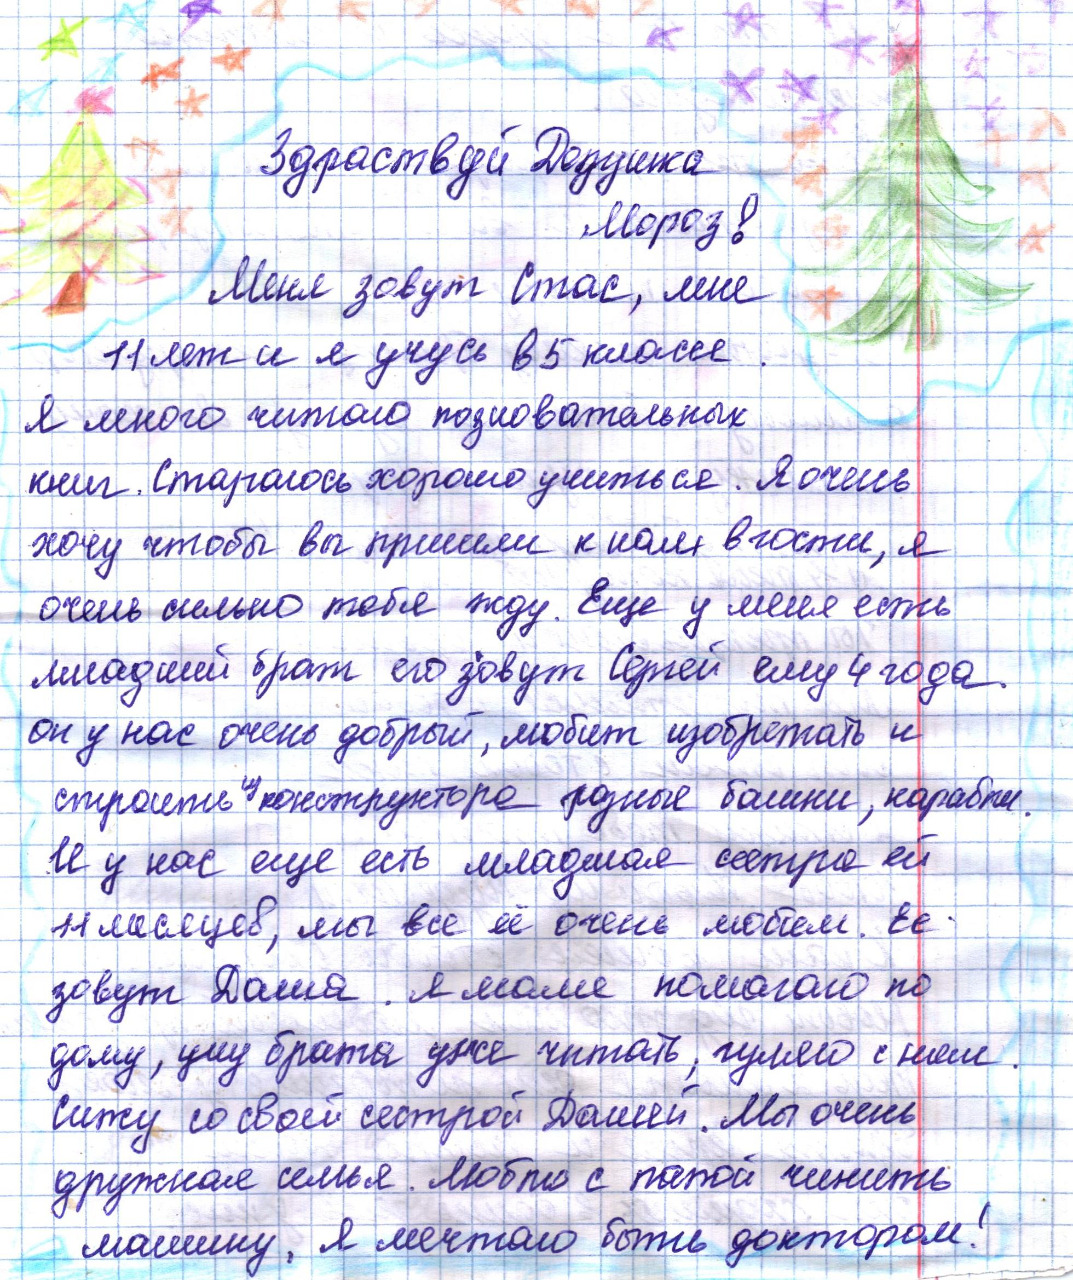 Здраствуй Дедушка
Мороз!
Меня зовут Стас, мне
11 лет и я учусь в 5 классе.
Я много читаю позновательных
книг. Стараюсь хорошо учиться. Я очень
хочу чтобы вы пришли к нам в гости, я
очень сильно тебя жду. Еще у меня есть
младший брат его зовут Сергей ему 4 года.
он у нас очень добрый, любит изобретать и
строить из конструктора разные башни, карабли.
И у нас еще есть младшая сестра ей
11 месяцев, мы все её очень любим. Ее
зовут Даша. Я маме помогаю по
дому, учу брата уже читать, гуляю с ним.
Сижу со своей сестрой Дашей. Мы очень
дружная семья. Люблю с папой чинить
машину. Я мечтаю быть доктором!